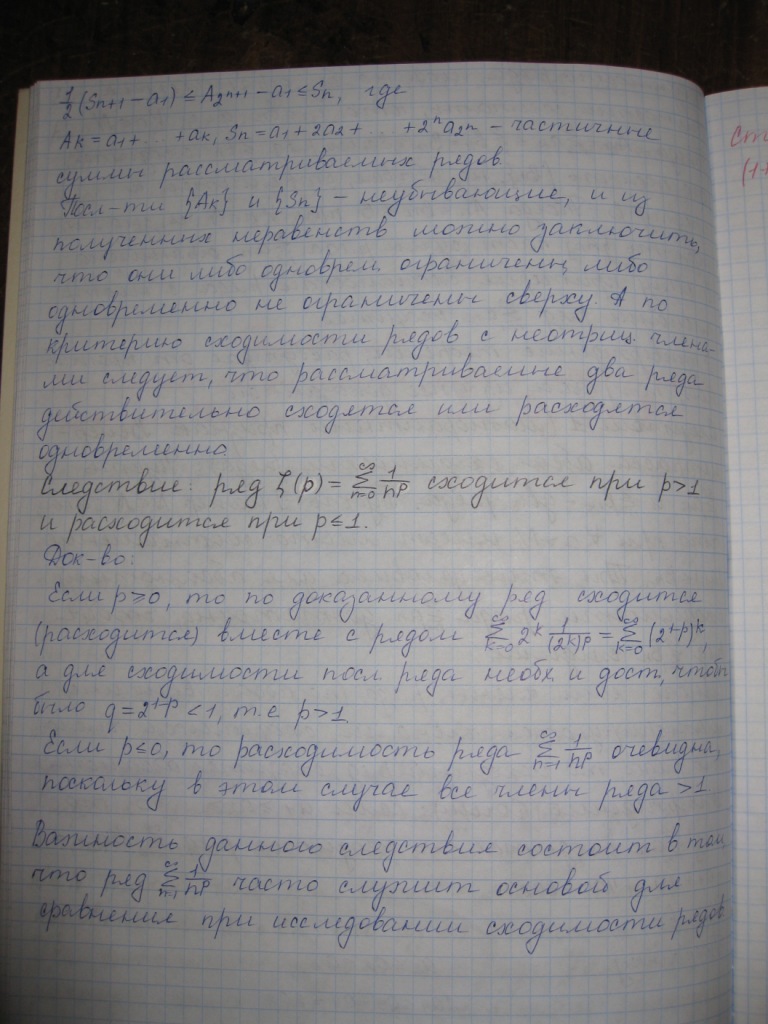 ½(Sn+1 − a1) ≤ A2ⁿ⁺¹ − a1 ≤ Sn, где
Ak = a1 + ... + ak, Sn = a1 + 2a2 + ... + 2ⁿa2ⁿ – частичные
суммы рассматриваемых рядов.
Посл-ти {Ak} и {Sn} – неубывающие, и из
полученных неравенств можно заключить,
что они либо одноврем. ограничены, либо
одновременно не ограничены сверху. А по
критерию сходимости рядов с неотриц. члена-
ми следует, что рассматриваемые два ряда
действительно сходятся или расходятся
одновременно.
Следствие: ряд ζ(p) = ∞∑n=0 1/nᵖ сходится при p>1
и расходится при p≤1.
Док-во:
Если p≥0, то по доказанному ряд сходится
(расходится) вместе с рядом ∞∑k=0 2ᵏ 1/(2k)ᵖ = ∞∑k=0 (2¹⁻ᵖ)ᵏ,
а для сходимости посл. ряда необх. и дост., чтобы
было q = 2¹⁻ᵖ < 1, т.е. p>1.
Если p≤0, то расходимость ряда ∞∑n=1 1/nᵖ очевидна,
поскольку в этом случае все члены ряда >1
Важность данного следствия состоит в том,
что ряд ∞∑n=1 1/nᵖ часто служит основой для
сравнения при исследовании сходимости рядов.